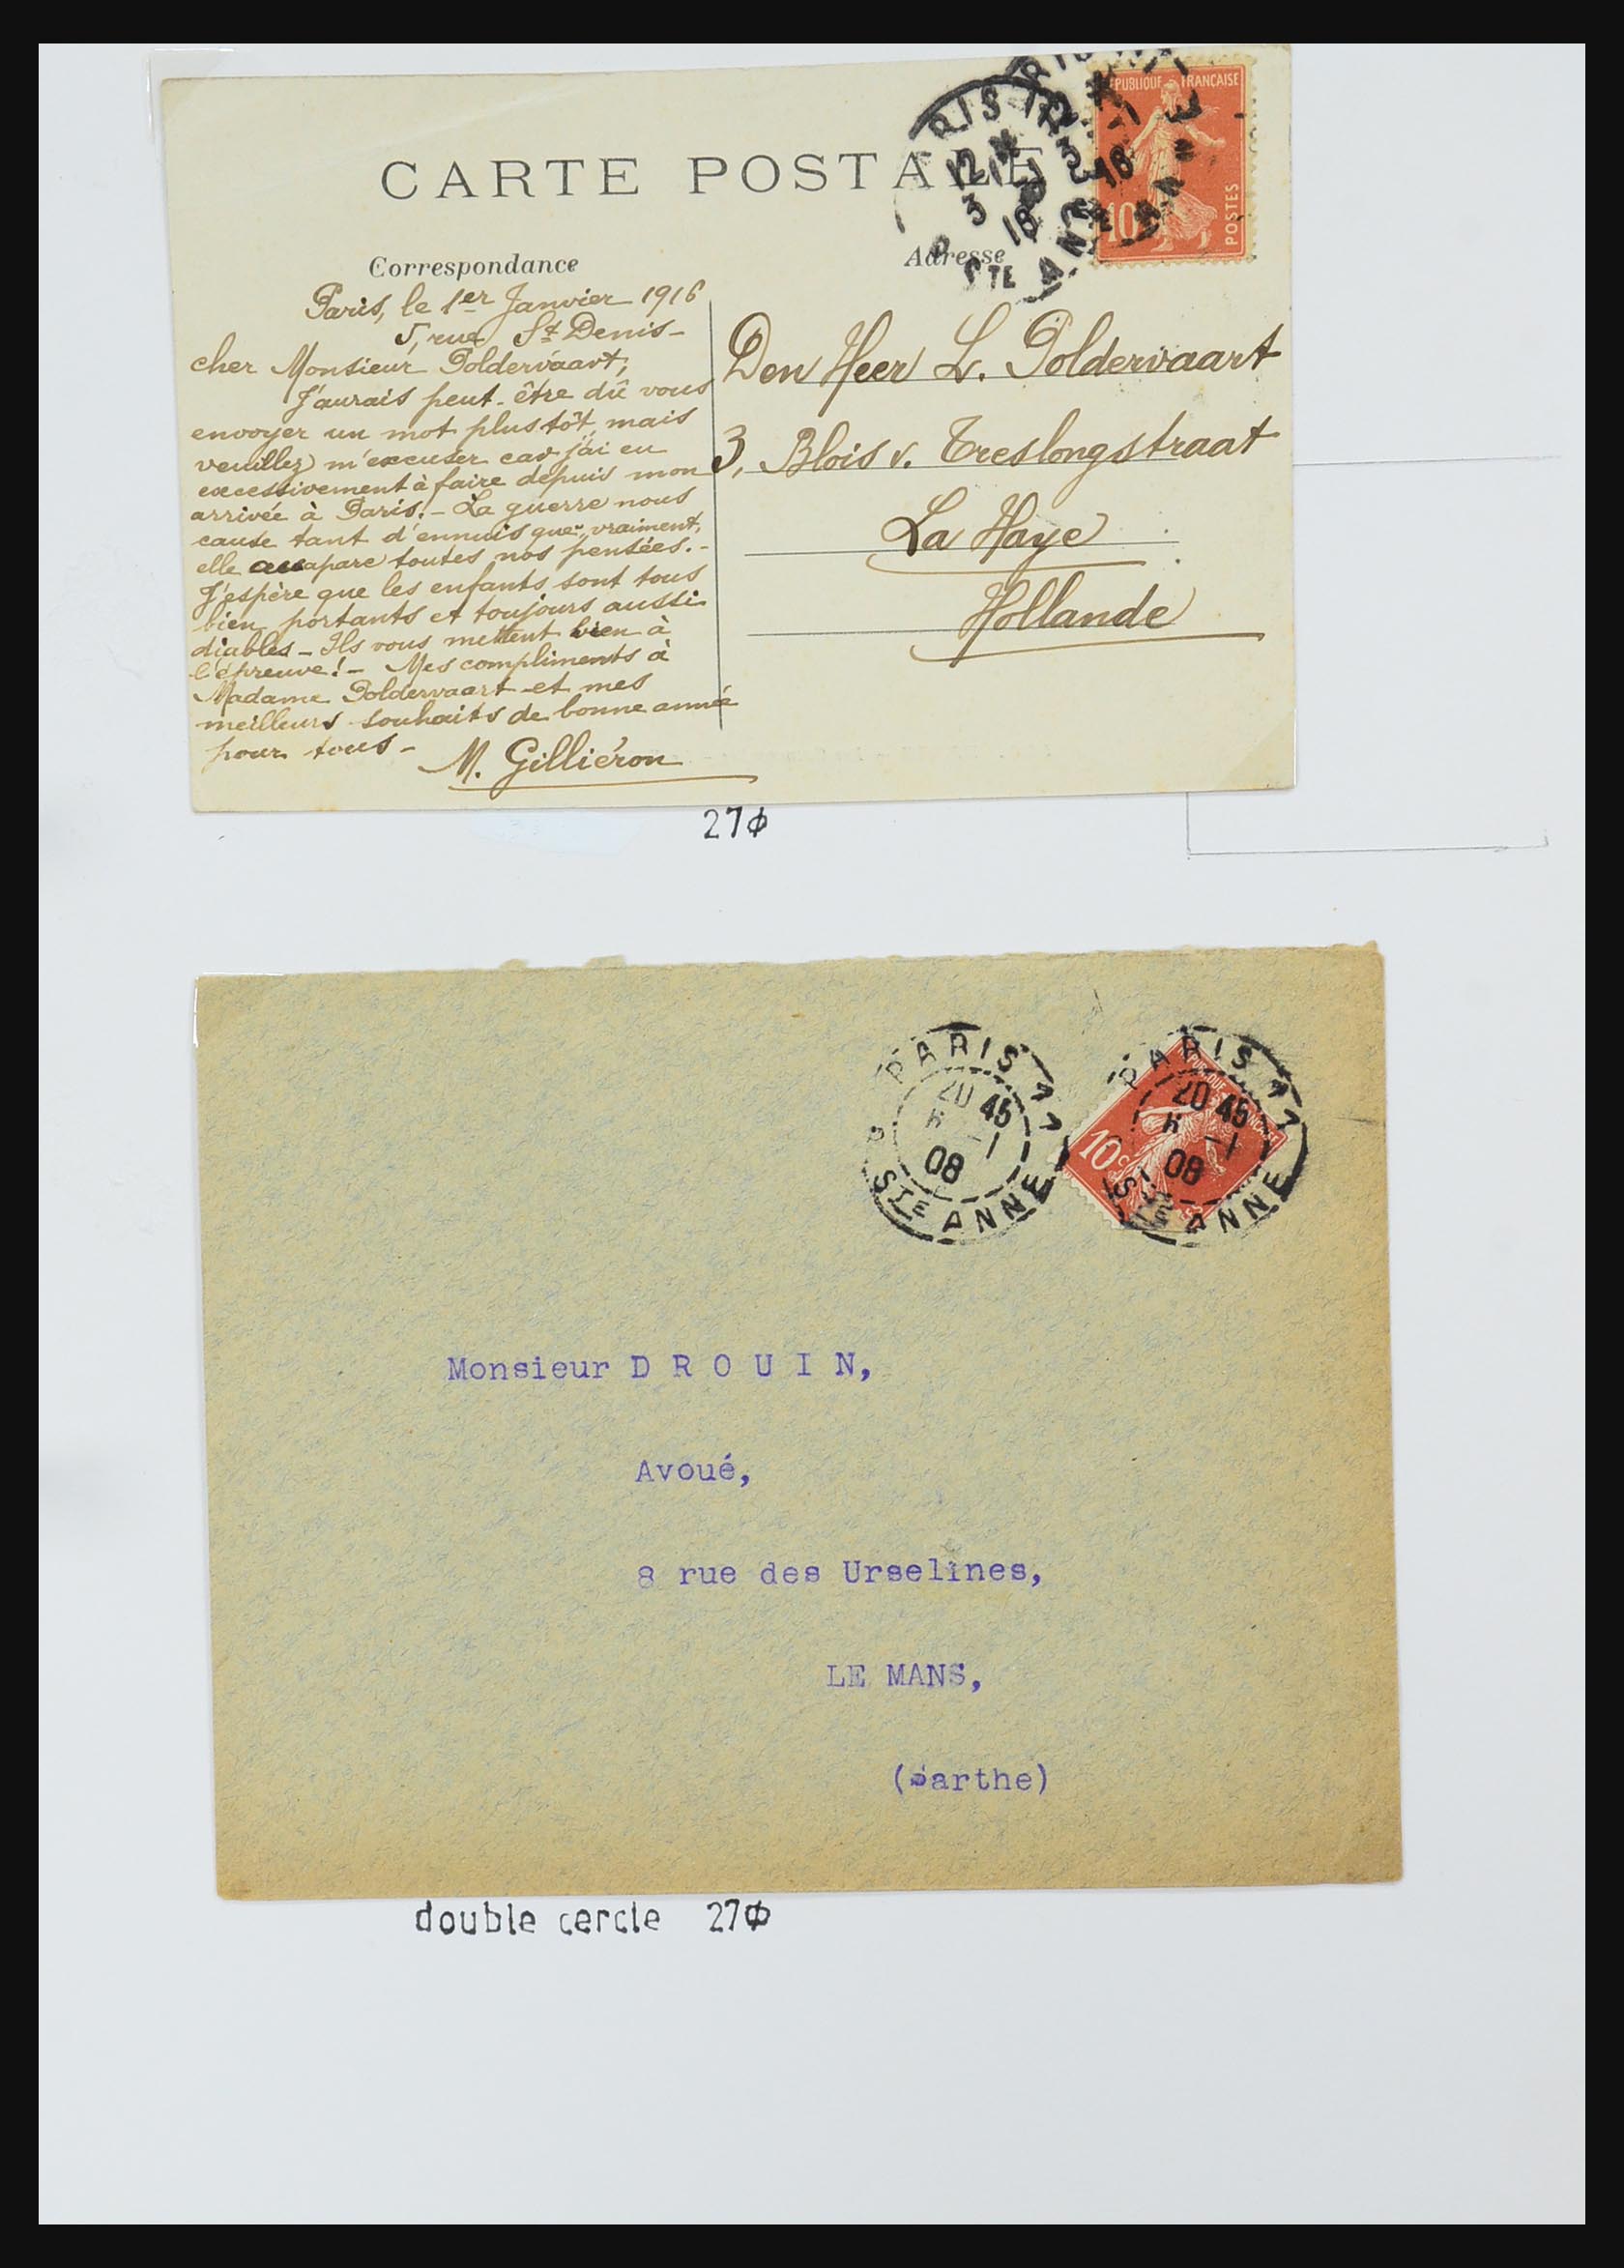 CARTE POSTALE
RÉPUBLIQUE FRANÇAISE
10
POSTES
12 *
3
16
STE ANNE
Correspondance
Adresse
Paris, le 1er Janvier 1916
5, rue St Denis -
cher Monsieur Poldervaart,
J'aurais peut-être dû vous
envoyer un mot plus tôt, mais
veuillez m'excuser car j'ai eu
excessivement à faire depuis mon
arrivée à Paris. - La guerre nous
cause tant d'ennuis que, vraiment,
elle accapare toutes nos pensées. -
J'espère que les enfants sont tous
bien portants et toujours aussi
diables - Ils vous mettent bien à
l'épreuve! - Mes compliments à
Madame Poldervaart et mes
meilleurs souhaits de bonne année
pour tous -
M. Gilliéron
Den Heer L. Poldervaart
3, Blois v. Treslongstraat
La Haye
Hollande
27¢
PARIS
20 45
-1
08
STE ANNE
PARIS
20 45
-1
08
STE ANNE
10c
Monsieur D R O U I N,
Avoué,
8 rue des Urselines,
LE MANS,
(Sarthe)
double cercle 27¢